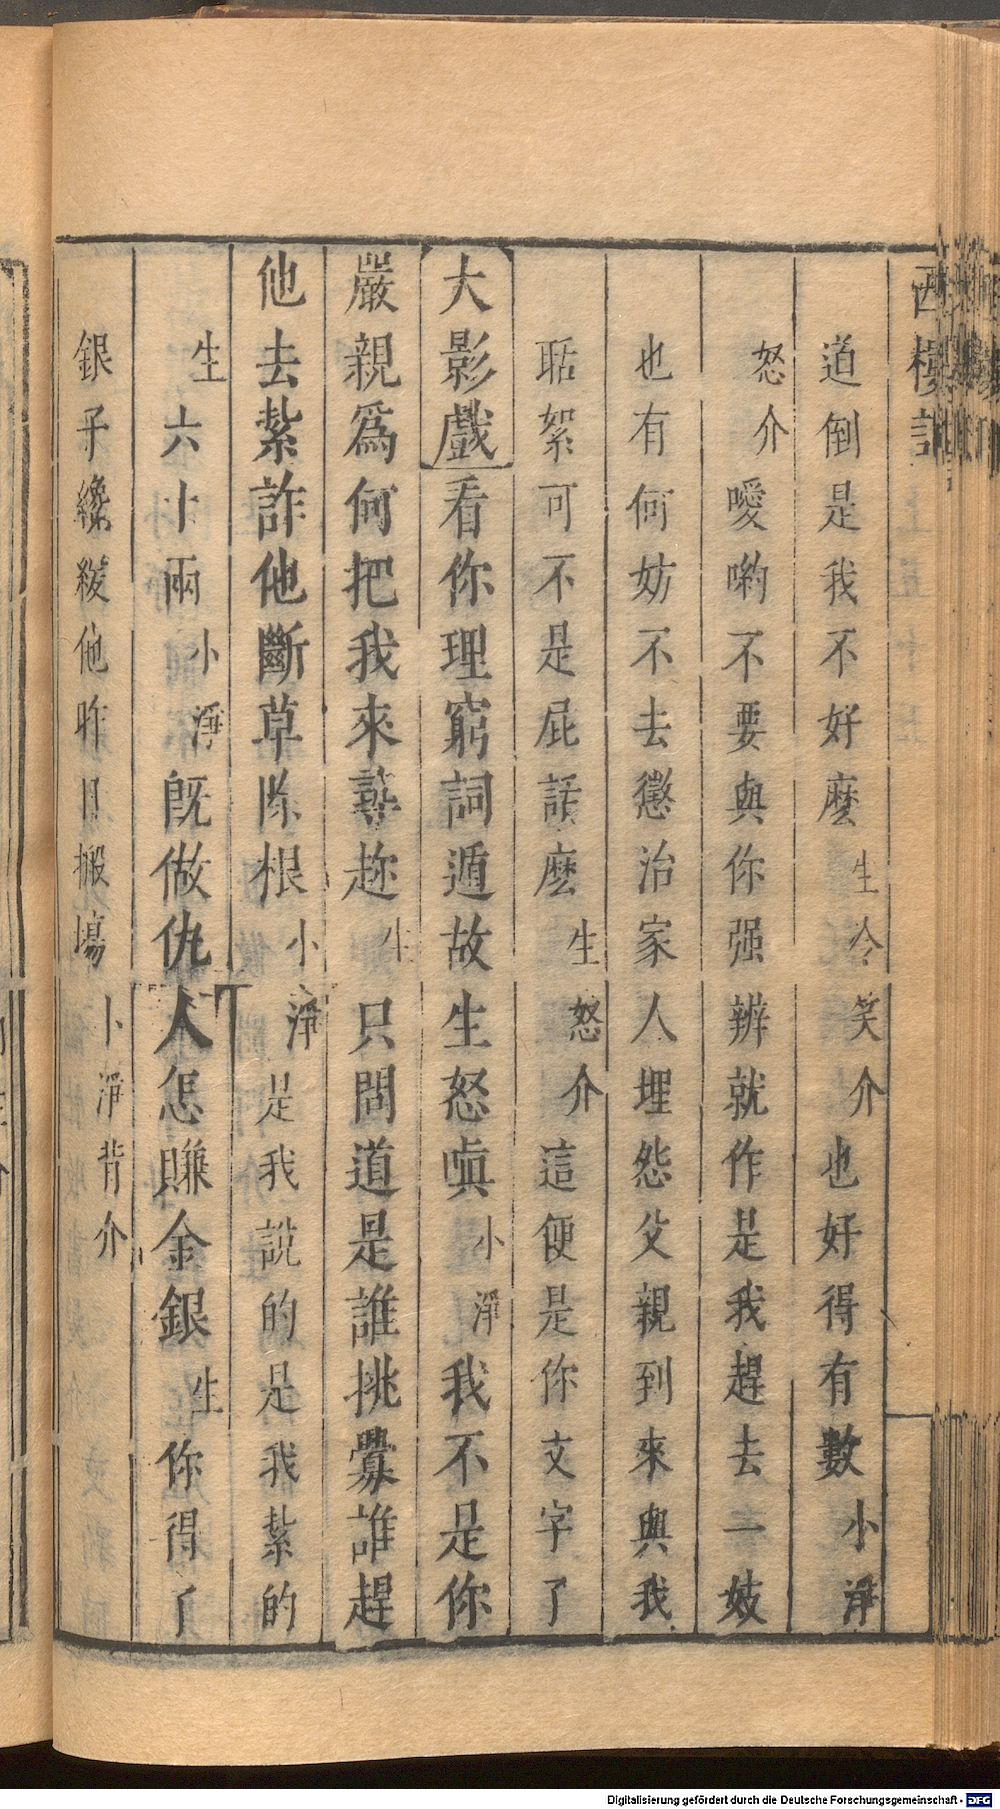 西樓記
道倒是我不好麽生冷笑介也好得有數小淨
怒介噯喲不要與你强辨就作是我趕去一妓
也有何妨不去懲治家人埋怨父親到來與我
聒絮可不是屁話麽生怒介這便是你文字了
大影戲看你理窮詞遁故生怒嗔小淨我不是你
嚴親爲何把我來尋趂生只問道是誰挑釁誰趕
他去紮詐他斷草除根小淨是我說的是我紮的
生六十兩小淨旣做仇人怎賺金銀生你得了
銀子纔緩他昨日搬場卜淨背介
Digitalisierung gefördert durch die Deutsche Forschungsgemeinschaft - DFG